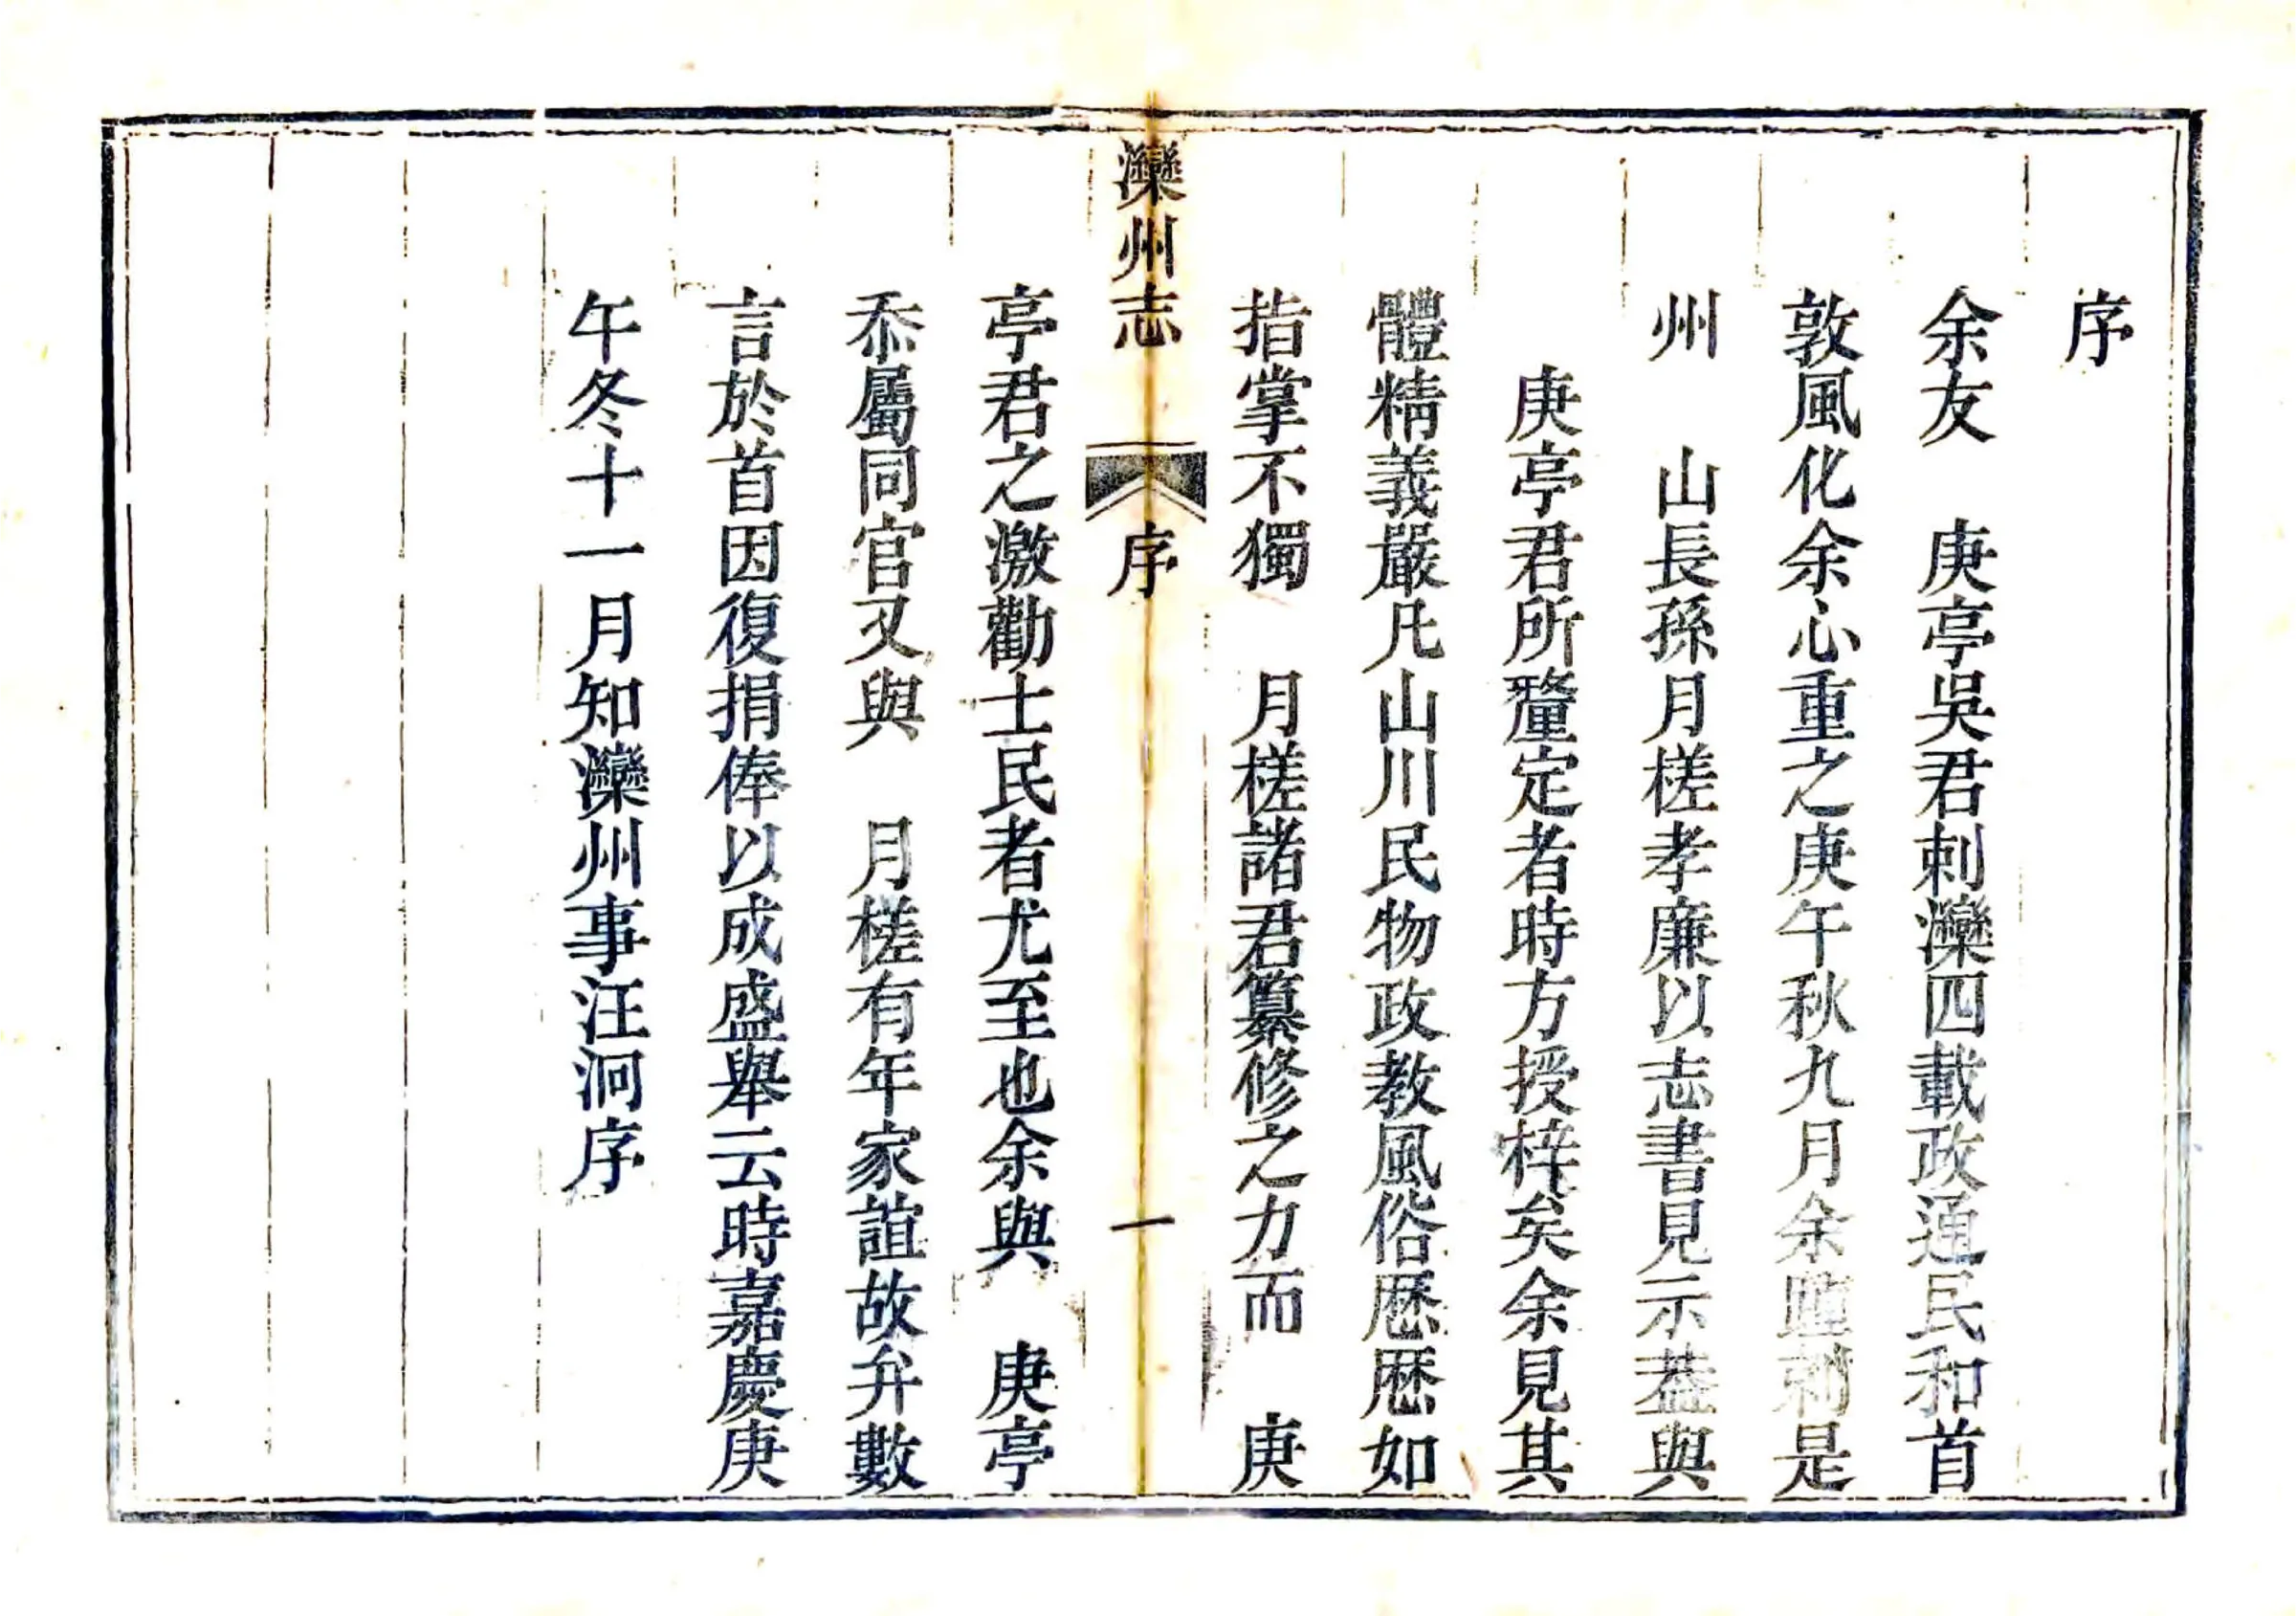 序
余友　庚亭吳君刺灤四載政通民和首
敦風化余心重之庚午秋九月余踵刺是
州　山長孫月槎孝廉以志書見示葢與
庚亭君所釐定者時方授梓矣余見其
體精義嚴凡山川民物政教風俗歴歴如
指掌不獨　月槎諸君纂修之力而　庚
灤州志　序　一
亭君之激勸士民者尤至也余與　庚亭
忝屬同官又與　月槎有年家誼故弁數
言於首因復捐俸以成盛舉云時嘉慶庚
午冬十一月知灤州事汪泂序